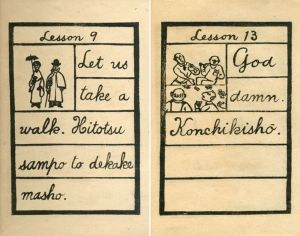 Lesson 9
Let us
take a
walk. Hitotsu
sampo to dekake
masho.
Lesson 13
God
damn.
Konchikishō.